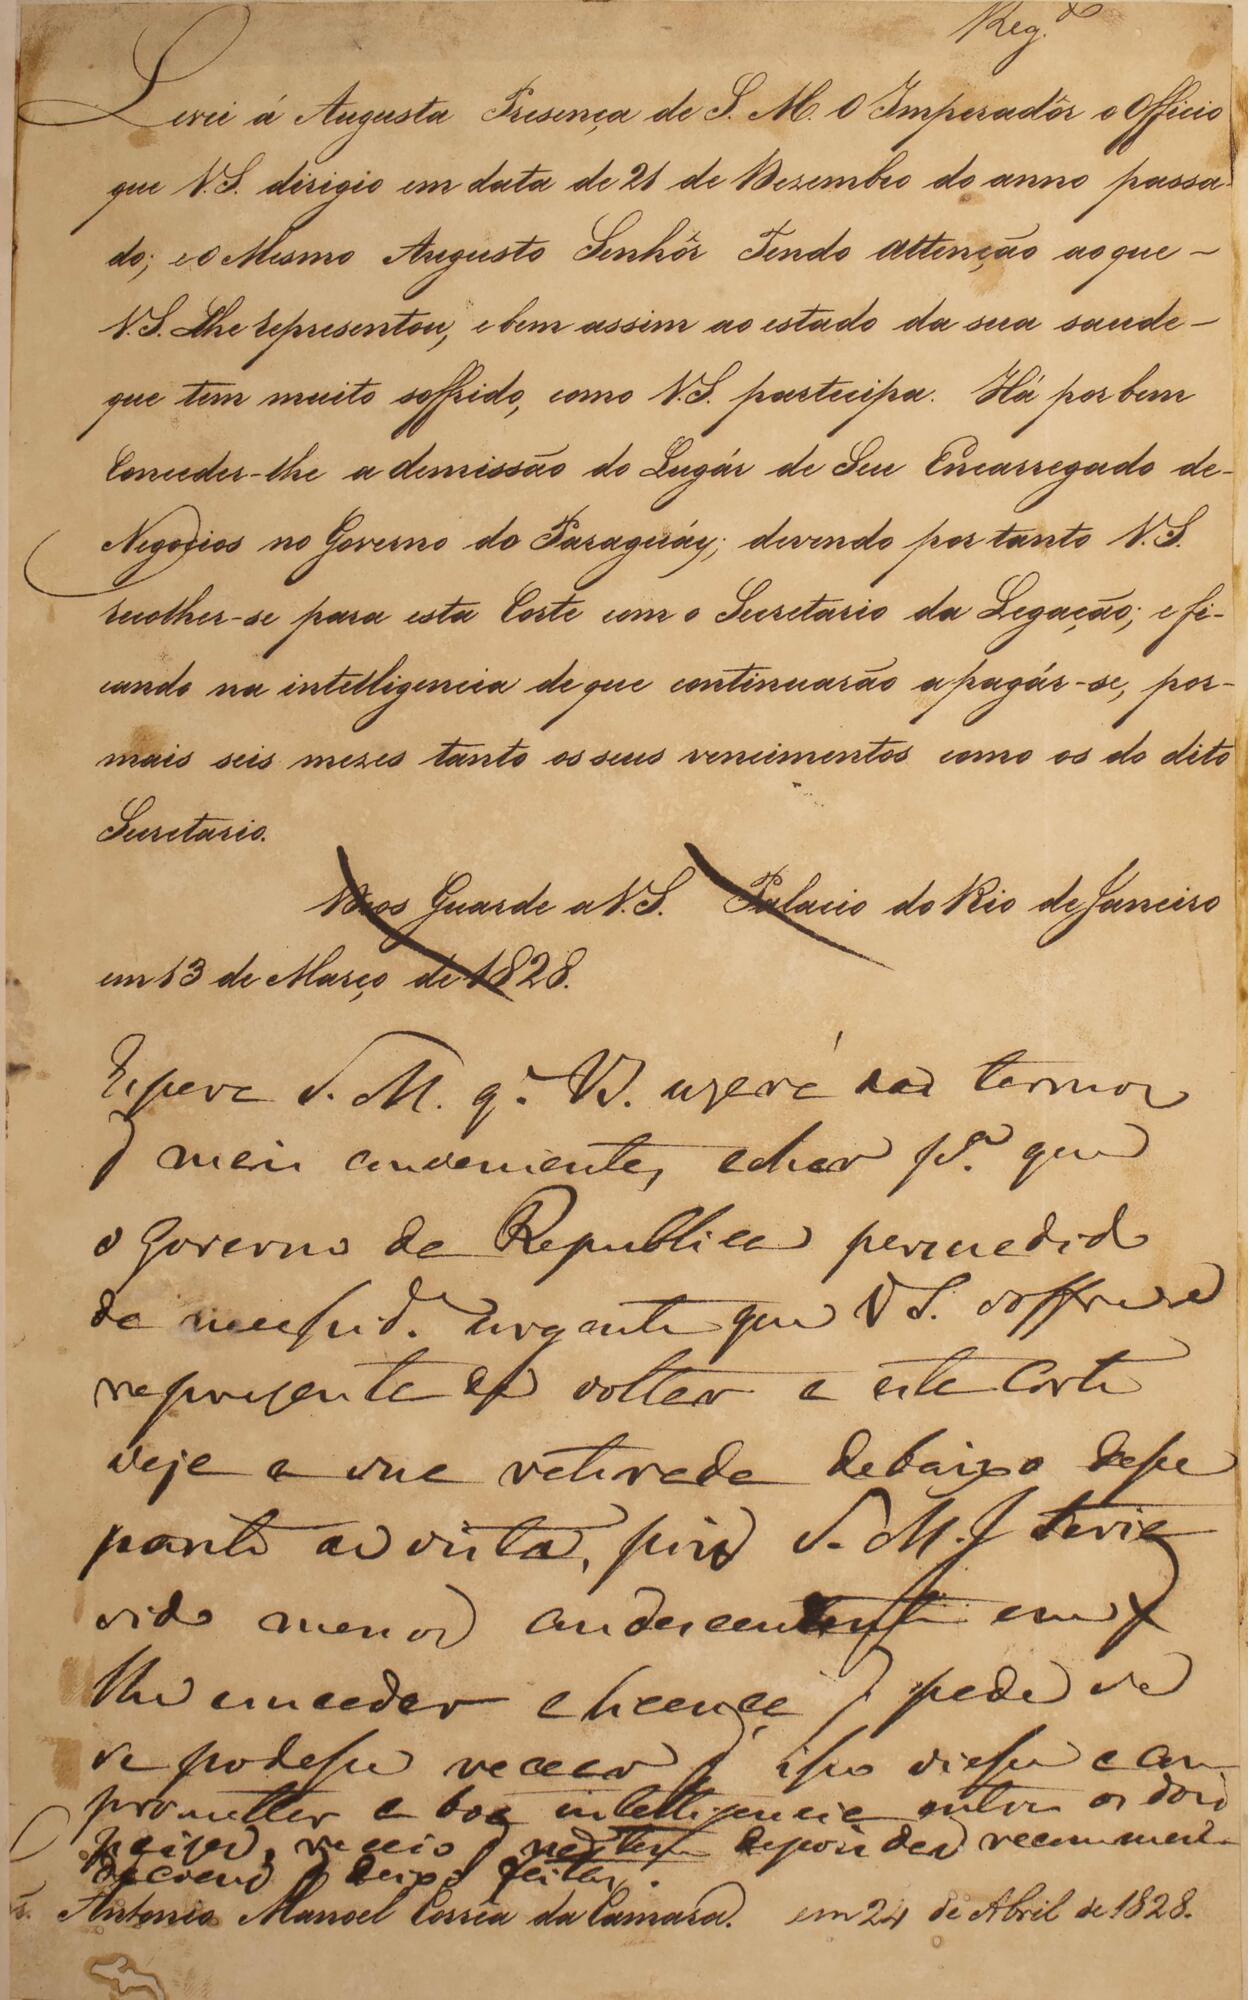 Reg.do
Levei á Augusta Presença de S. M. O Imperadôr o Officio
que V.S. dirigio em data de 21 de Dezembro do anno passa-
do; e o Mesmo Augusto Senhôr Tendo attenção ao que -
V.S. Lhe representou, e bem assim ao estado da sua saude -
que tem muito soffrido, como V.S. partecipa. Há por bem
Conceder-lhe a demissão do Lugár de Seu Encarregado de-
Negocios no Governo do Paraguáy; devendo por tanto V.S.
recolher-se para esta Corte com o Secretario da Legação; e fi-
cando na intelligencia de que continuarão a pagár-se, por-
mais seis mezes tanto os seus vencimentos como os do dito
Secretario.
Deos Guarde a V.S. Palacio do Rio de Janeiro
em 13 de Março de 1828.
Espera S. M. q. V.S. uzará dos termos
mais convenientes, e habeis p.a que
o Governo da Republica persuadido
da necessid.e urgente que V.S.
representa de voltar a esta Corte
veja a sua retirada debaixo desse
ponto de vista, pois S. M. I. teria
sido menos condescendente em
lhe conceder a licença q pede se
se podesse recear q isso viesse a com-
prometter a boa intelligencia entre os dois
paizes, receio q depois das recommen-
dacoens q deixo feitas.
Antonio Manoel Corrêa da Camara. em 24 de Abril de 1828.